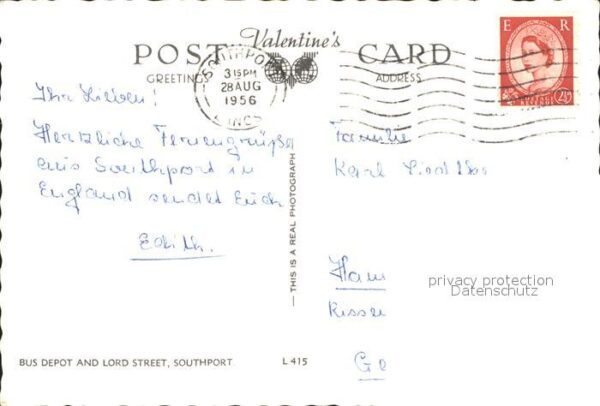 Valentine's
POST CARD
GREETINGS
ADDRESS
SOUTHPORT
3 15 PM
28 AUG
1956
LANCS
E R
2½D
Ihr Lieben!
Herzliche Feriengrüße
aus Southport in
England sendet Euch
Edith.
THIS IS A REAL PHOTOGRAPH
Familie
Karl
Ham
Rissen
Ge
privacy protection
Datenschutz
BUS DEPOT AND LORD STREET, SOUTHPORT.
L 415